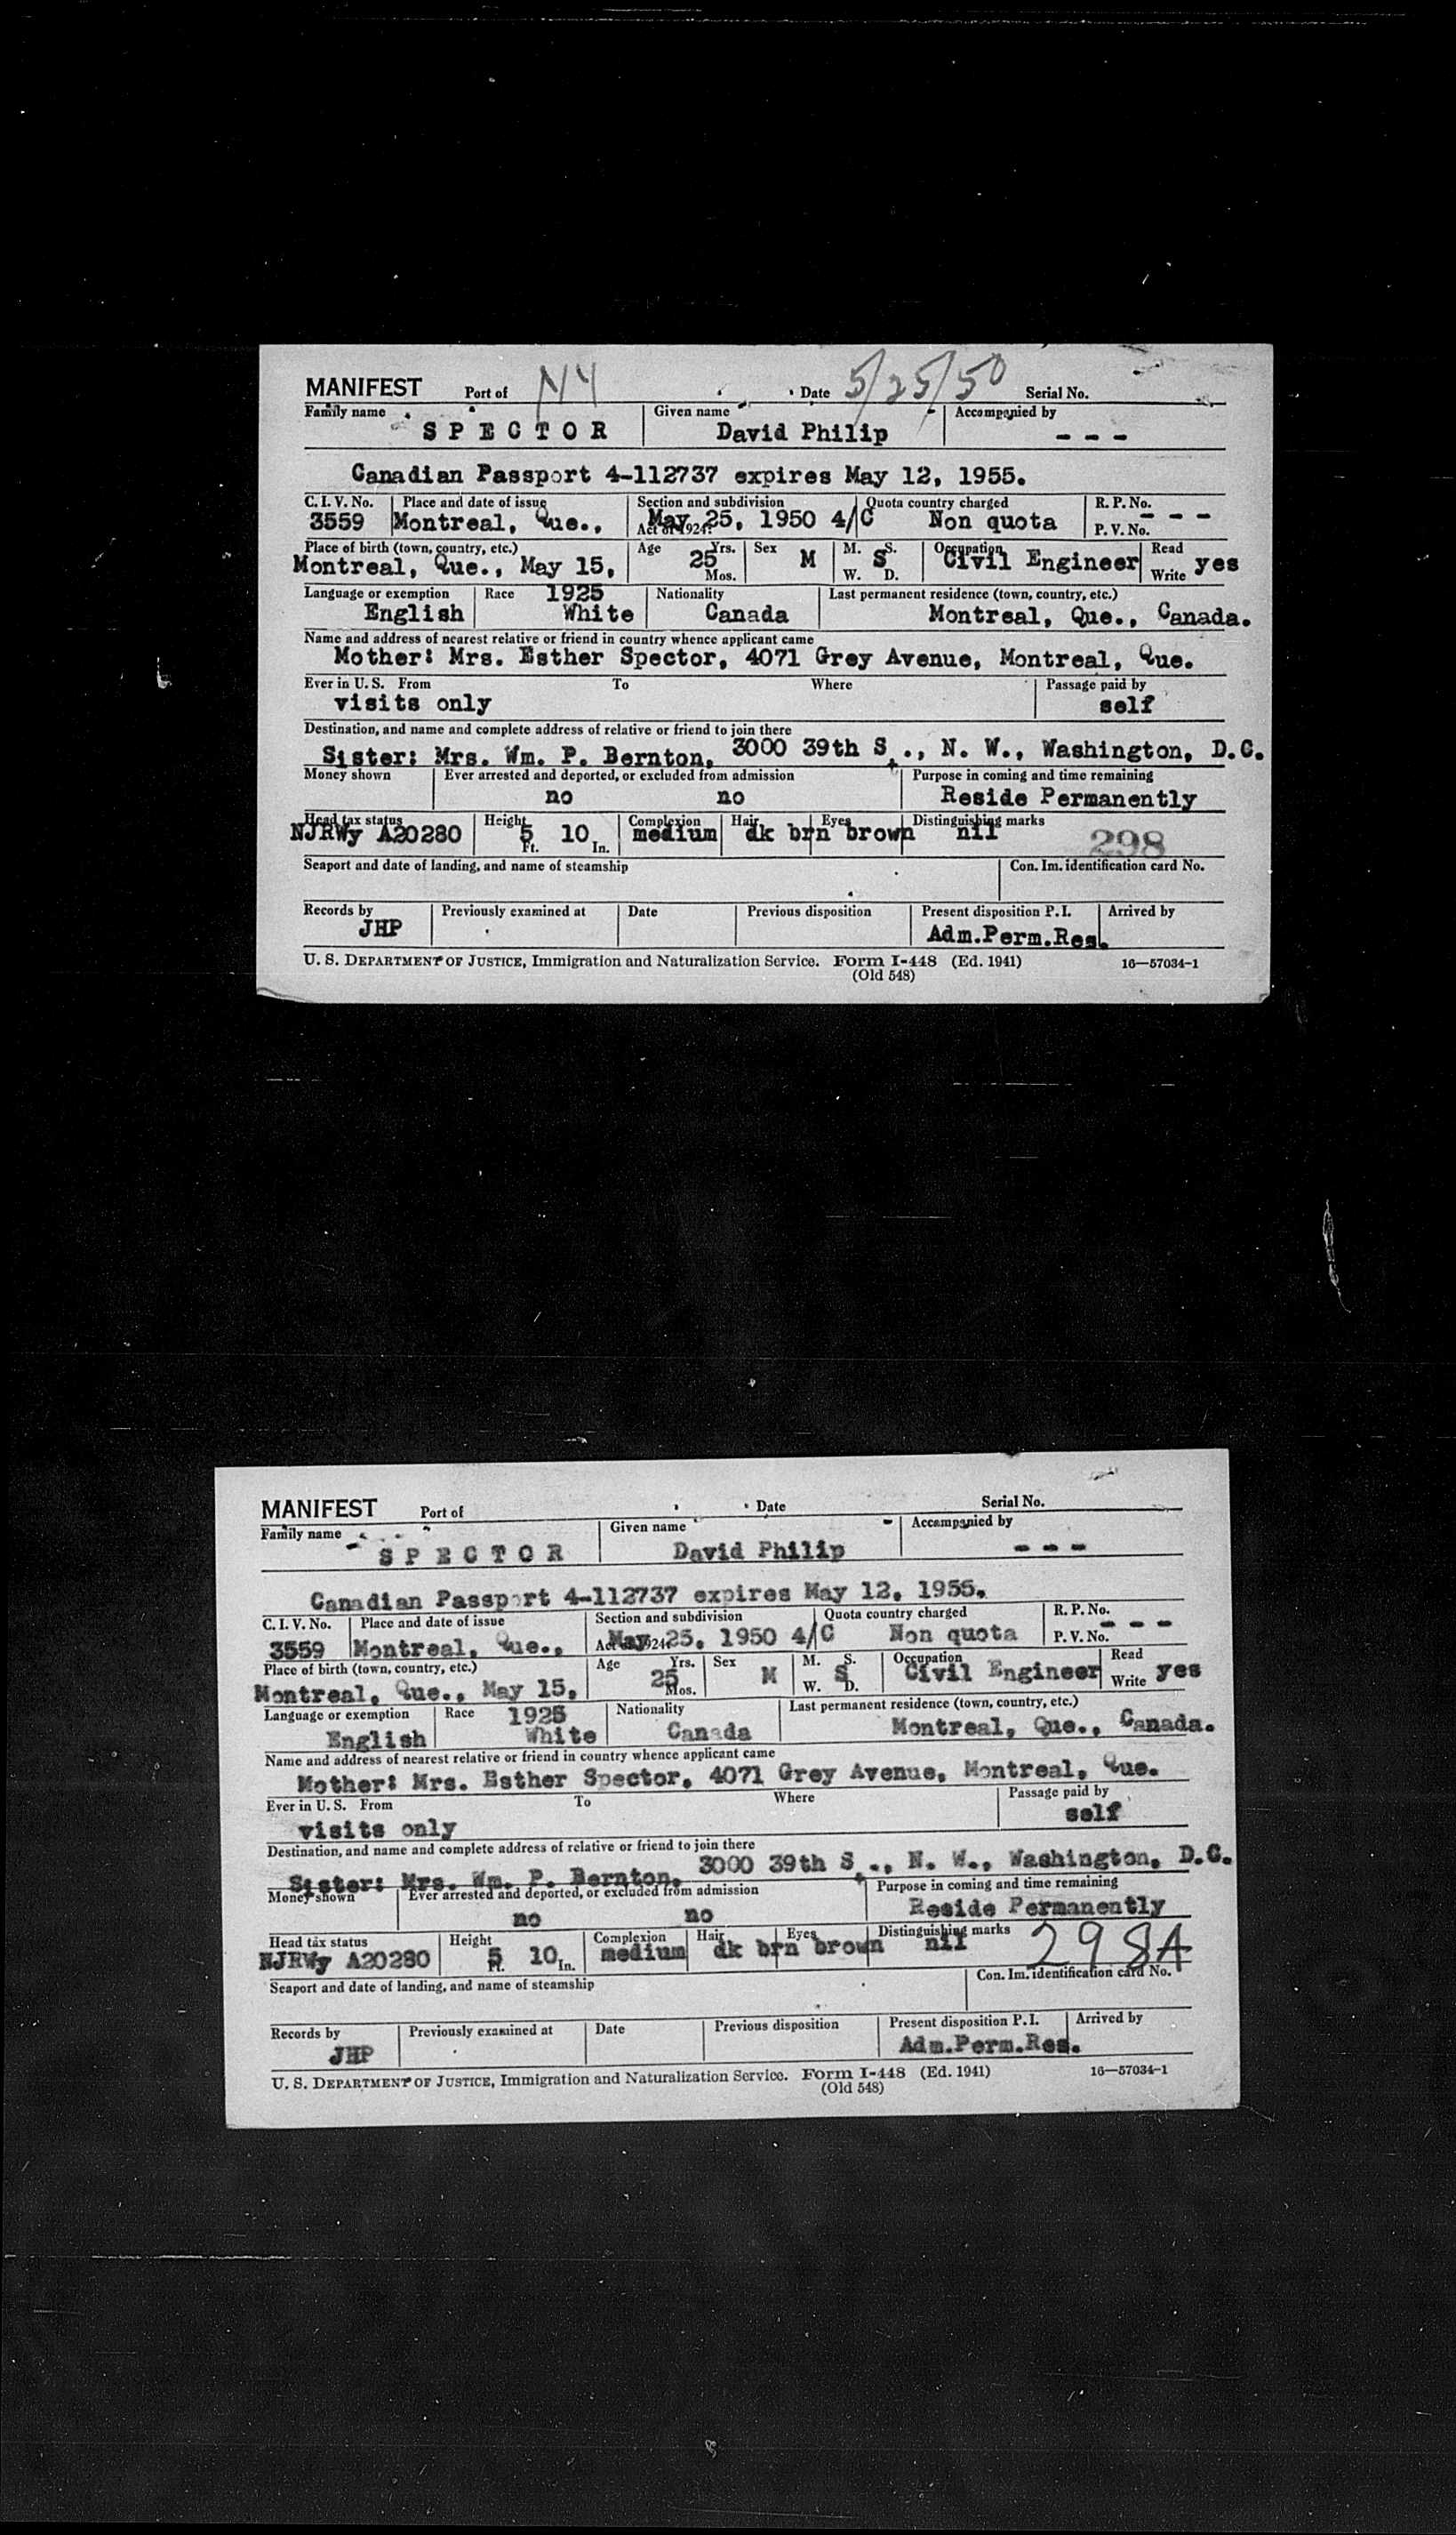 MANIFEST Port of NY Date 5/25/50 Serial No.
Family name Given name Accompanied by
S P E C T O R David Philip - - -
Canadian Passport 4-112737 expires May 12, 1955.
C. I. V. No. Place and date of issue Section and subdivision Quota country charged R. P. No.
3559 Montreal, Que., May 25, 1950 4/C Non quota - - -
Act of 1924: P. V. No.
Place of birth (town, country, etc.) Age Yrs. Sex M. S. Occupation Read
Montreal, Que., May 15, 25 M S Civil Engineer yes
Mos. W. D. Write
Language or exemption Race 1925 Nationality Last permanent residence (town, country, etc.)
English White Canada Montreal, Que., Canada.
Name and address of nearest relative or friend in country whence applicant came
Mother: Mrs. Esther Spector, 4071 Grey Avenue, Montreal, Que.
Ever in U. S. From To Where Passage paid by
visits only self
Destination, and name and complete address of relative or friend to join there
Sister: Mrs. Wm. P. Bernton, 3000 39th St., N. W., Washington, D.C.
Money shown Ever arrested and deported, or excluded from admission Purpose in coming and time remaining
no no Reside Permanently
Head tax status Height Complexion Hair Eyes Distinguishing marks
NJRWy A20280 5 10 medium dk brn brown nil 298
Ft. In.
Seaport and date of landing, and name of steamship Con. Im. identification card No.
Records by Previously examined at Date Previous disposition Present disposition P. I. Arrived by
JHP Adm.Perm.Res.
U. S. DEPARTMENT OF JUSTICE, Immigration and Naturalization Service. Form I-448 (Ed. 1941) 16—57034-1
(Old 548)
MANIFEST Port of Date Serial No.
Family name Given name Accompanied by
S P E C T O R David Philip - - -
Canadian Passport 4-112737 expires May 12, 1955.
C. I. V. No. Place and date of issue Section and subdivision Quota country charged R. P. No.
3559 Montreal, Que., May 25, 1950 4/C Non quota - - -
Act of 1924: P. V. No.
Place of birth (town, country, etc.) Age Yrs. Sex M. S. Occupation Read
Montreal, Que., May 15, 25 M S Civil Engineer yes
Mos. W. D. Write
Language or exemption Race 1925 Nationality Last permanent residence (town, country, etc.)
English White Canada Montreal, Que., Canada.
Name and address of nearest relative or friend in country whence applicant came
Mother: Mrs. Esther Spector, 4071 Grey Avenue, Montreal, Que.
Ever in U. S. From To Where Passage paid by
visits only self
Destination, and name and complete address of relative or friend to join there
Sister: Mrs. Wm. P. Bernton, 3000 39th St., N. W., Washington, D.C.
Money shown Ever arrested and deported, or excluded from admission Purpose in coming and time remaining
no no Reside Permanently
Head tax status Height Complexion Hair Eyes Distinguishing marks
NJRWy A20280 5 10 medium dk brn brown nil 298A
Ft. In.
Seaport and date of landing, and name of steamship Con. Im. identification card No.
Records by Previously examined at Date Previous disposition Present disposition P. I. Arrived by
JHP Adm.Perm.Res.
U. S. DEPARTMENT OF JUSTICE, Immigration and Naturalization Service. Form I-448 (Ed. 1941) 16—57034-1
(Old 548)